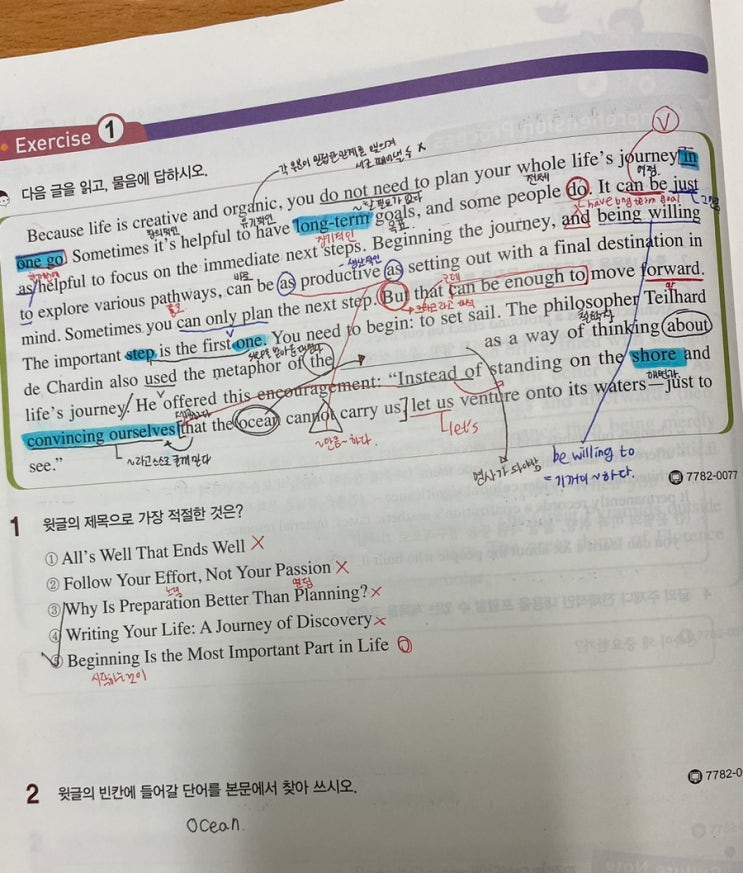 Exercise 1
다음 글을 읽고, 물음에 답하시오.
각 부분이 밀접한 관계를 맺으며
서로 떼어낼 수 X
V
Because life is creative and organic, you do not need to plan your whole life's journey in
창의적인
유기적인
~할 필요가 없다
전체
여정
one go. Sometimes it's helpful to have long-term goals, and some people do. It can be just
한 번에
장기적인
목표
have long term goal
as helpful to focus on the immediate next steps. Beginning the journey, and being willing
바로
생산적인
to explore various pathways, can be as productive as setting out with a final destination in
mind. Sometimes you can only plan the next step. But that can be enough to move forward.
근데
앞
The important step is the first one. You need to begin: to set sail. The philosopher Teilhard
철학자
de Chardin also used the metaphor of the as a way of thinking about
life's journey. He offered this encouragement: “Instead of standing on the shore and
해변가
convincing ourselves that the ocean cannot carry us, let us venture onto its waters—just to
see.”
let's
~라고 스스로 굳게 믿다
be willing to
= 기꺼이 ~하다.
7782-0077
1 윗글의 제목으로 가장 적절한 것은?
① All's Well That Ends Well X
② Follow Your Effort, Not Your Passion X
노력
열정
③ Why Is Preparation Better Than Planning? X
④ Writing Your Life: A Journey of Discovery X
⑤ Beginning Is the Most Important Part in Life O
시작하는 것이
7782-0
2 윗글의 빈칸에 들어갈 단어를 본문에서 찾아 쓰시오.
Ocean.